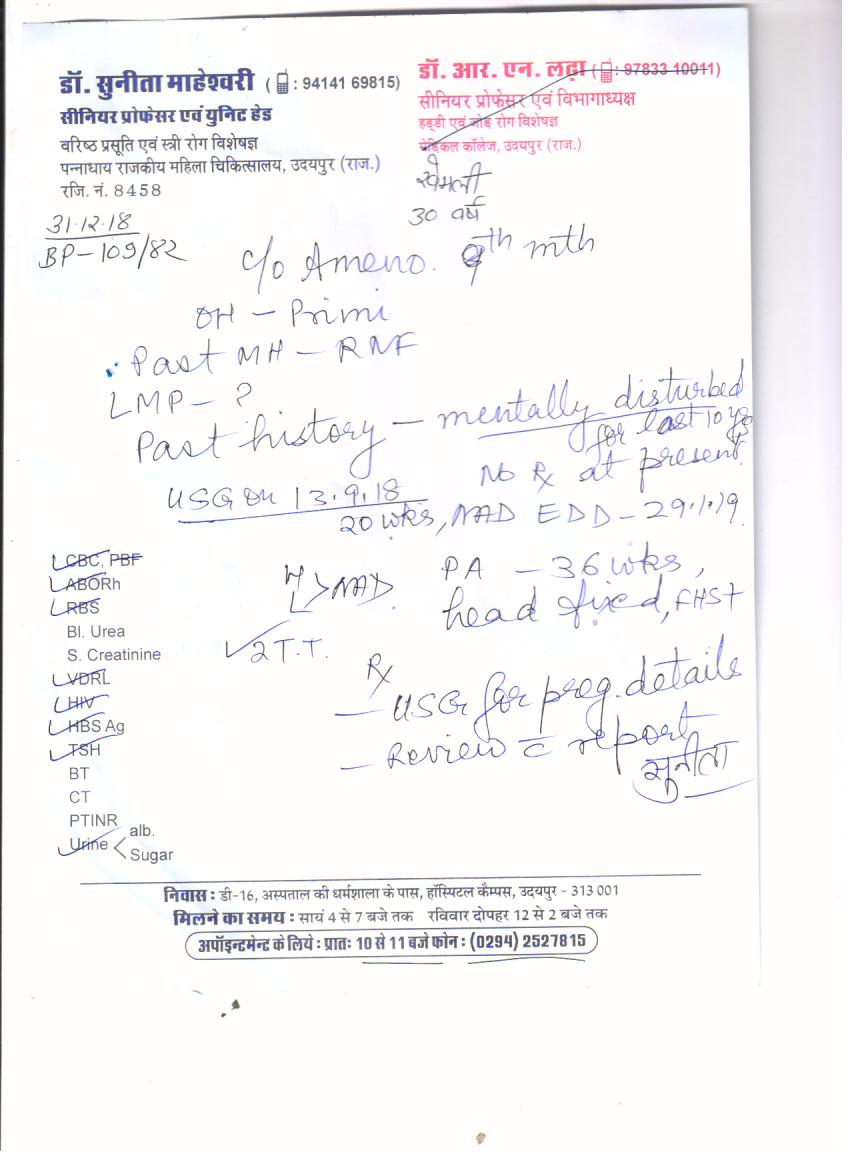 डॉ. सुनीता माहेश्वरी (: 94141 69815)
सीनियर प्रोफेसर एवं युनिट हेड
वरिष्ठ प्रसूति एवं स्त्री रोग विशेषज्ञ
पन्नाधाय राजकीय महिला चिकित्सालय, उदयपुर (राज.)
रजि. नं. 8458
डॉ. आर. एन. लढ़ा (: 97833 10011)
सीनियर प्रोफेसर एवं विभागाध्यक्ष
हड्डी एवं जोड़ रोग विशेषज्ञ
मेडिकल कॉलेज, उदयपुर (राज.)
खेमली
30 वर्ष
31.12.18
BP-109/82
c/o Ameno. 9th mth
OH - Primi
Past MH - RNF
LMP - ?
Past history - mentally disturbed
for last 10 ys
No Rx at present.
USG on 13.9.18
20 wks, NAD EDD - 29.1.19
PA - 36 wks,
head fixed, FHS+
H
L > NAD
2 T.T.
Rx
- USG for preg. details
- Review c̄ report
सुनीता
CBC, PBF
ABORh
RBS
Bl. Urea
S. Creatinine
VDRL
HIV
HBS Ag
TSH
BT
CT
PTINR
Urine < alb.
Sugar
निवास : डी-16, अस्पताल की धर्मशाला के पास, हॉस्पिटल कैम्पस, उदयपुर - 313 001
मिलने का समय : सायं 4 से 7 बजे तक रविवार दोपहर 12 से 2 बजे तक
अपॉइन्टमेन्ट के लिये : प्रातः 10 से 11 बजे फोन : (0294) 2527815